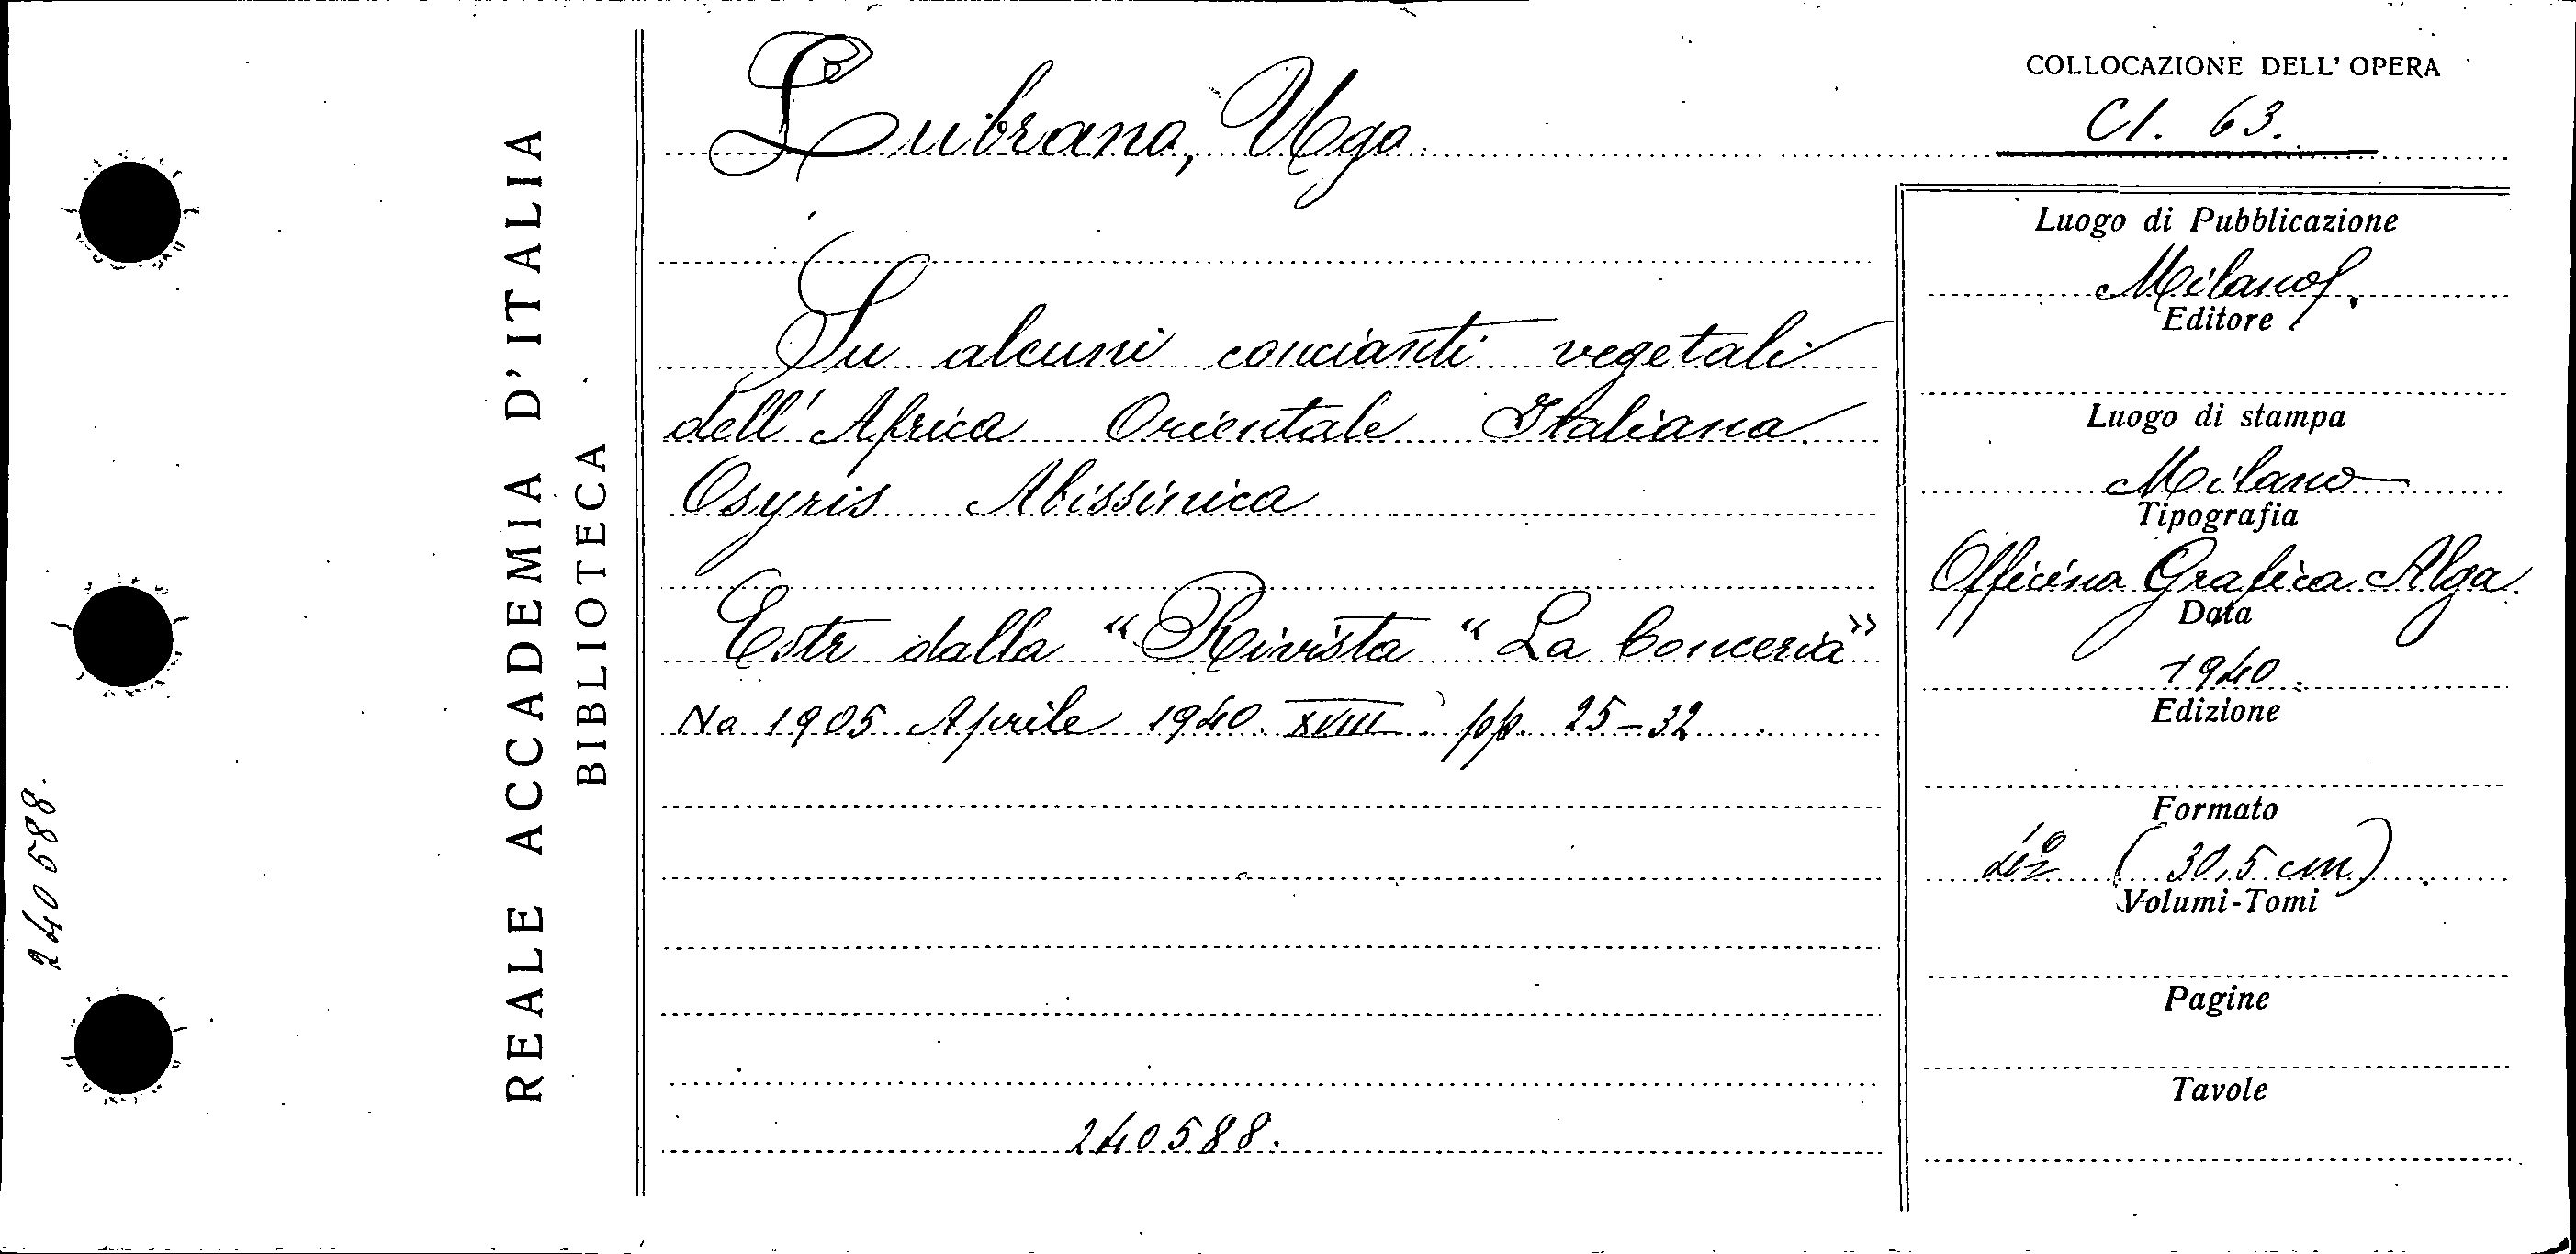 240588.
REALE ACCADEMIA D'ITALIA
BIBLIOTECA
Lubrano, Ugo
Su alcuni concianti vegetali
dell' Africa Orientale Italiana
Osyris Abissinica
Estr dalla "Rivista "La Conceria"
No 1905 Aprile 1940. XVIII pp. 25-32
240588.
COLLOCAZIONE DELL' OPERA
Cl. 63.
Luogo di Pubblicazione
Milano.
Editore
Luogo di stampa
Milano
Tipografia
Officina Grafica Alga.
Data
1940.
Edizione
Formato
(30,5 cm)
Volumi-Tomi
Pagine
Tavole